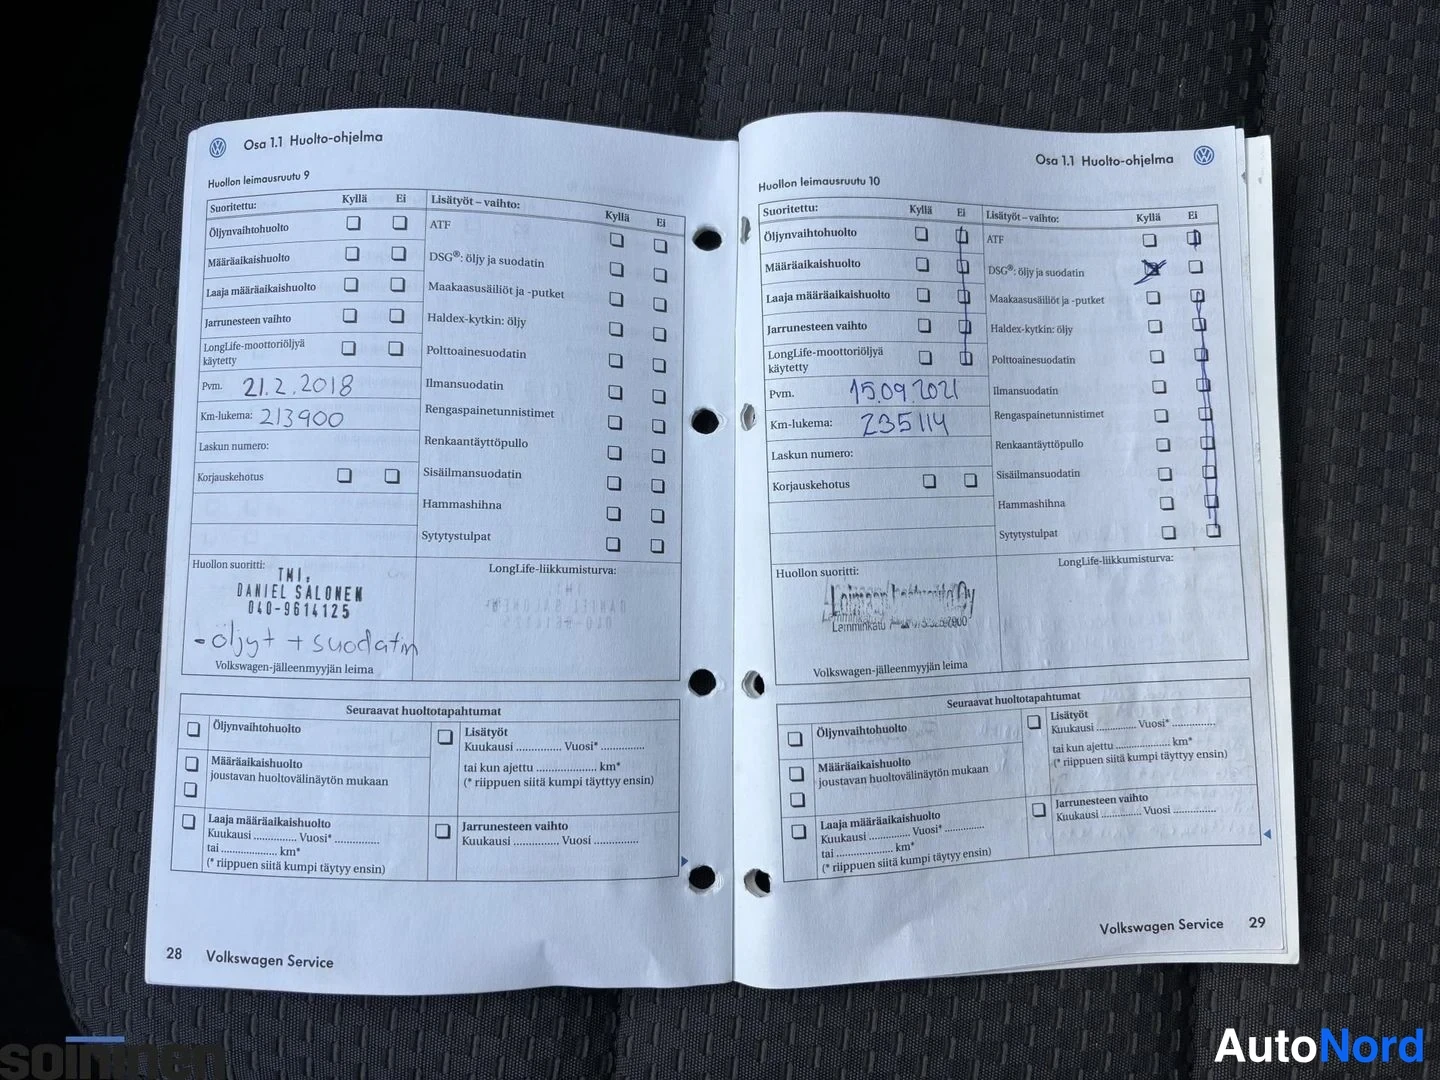 Osa 1.1 Huolto-ohjelma
Huollon leimausruutu 9
Suoritettu: Kyllä Ei
Öljynvaihtohuolto
Määräaikaishuolto
Laaja määräaikaishuolto
Jarrunesteen vaihto
LongLife-moottoriöljyä
käytetty
Pvm. 21.2.2018
Km-lukema: 213900
Laskun numero:
Korjauskehotus
Lisätyöt – vaihto: Kyllä Ei
ATF
DSG®: öljy ja suodatin
Maakaasusäiliöt ja -putket
Haldex-kytkin: öljy
Polttoainesuodatin
Ilmansuodatin
Rengaspainetunnistimet
Renkaantäyttöpullo
Sisäilmansuodatin
Hammashihna
Sytytystulpat
Huollon suoritti:
TMI,
DANIEL SALONEN
040-9614125
- öljyt + suodatin
Volkswagen-jälleenmyyjän leima
LongLife-liikkumisturva:
Seuraavat huoltotapahtumat
Öljynvaihtohuolto
Määräaikaishuolto
joustavan huoltovälinäytön mukaan
Laaja määräaikaishuolto
Kuukausi .............. Vuosi* ..............
tai .................. km*
(* riippuen siitä kumpi täytyy ensin)
Lisätyöt
Kuukausi .............. Vuosi* ..............
tai kun ajettu .................... km*
(* riippuen siitä kumpi täyttyy ensin)
Jarrunesteen vaihto
Kuukausi .............. Vuosi ..............
28 Volkswagen Service
Osa 1.1 Huolto-ohjelma
Huollon leimausruutu 10
Suoritettu: Kyllä Ei
Öljynvaihtohuolto
Määräaikaishuolto
Laaja määräaikaishuolto
Jarrunesteen vaihto
LongLife-moottoriöljyä
käytetty
Pvm. 15.09.2021
Km-lukema: 235114
Laskun numero:
Korjauskehotus
Lisätyöt – vaihto: Kyllä Ei
ATF
DSG®: öljy ja suodatin
Maakaasusäiliöt ja -putket
Haldex-kytkin: öljy
Polttoainesuodatin
Ilmansuodatin
Rengaspainetunnistimet
Renkaantäyttöpullo
Sisäilmansuodatin
Hammashihna
Sytytystulpat
Huollon suoritti:
Oy
Lemminkatu
Volkswagen-jälleenmyyjän leima
LongLife-liikkumisturva:
Seuraavat huoltotapahtumat
Öljynvaihtohuolto
Määräaikaishuolto
joustavan huoltovälinäytön mukaan
Laaja määräaikaishuolto
Kuukausi .............. Vuosi* ..............
tai .................. km*
(* riippuen siitä kumpi täytyy ensin)
Lisätyöt
Kuukausi .............. Vuosi* ..............
tai kun ajettu .................... km*
(* riippuen siitä kumpi täyttyy ensin)
Jarrunesteen vaihto
Kuukausi .............. Vuosi ..............
Volkswagen Service 29
AutoNord